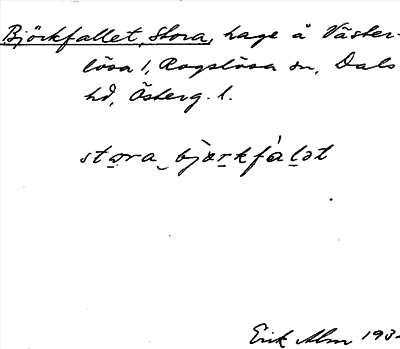 Björkfallet, Stora, hage å Väster-
lösa 1, Rogslösa sn, Dals
hd, Österg. l.
stora bjørkfàlət
Erik Alm 193